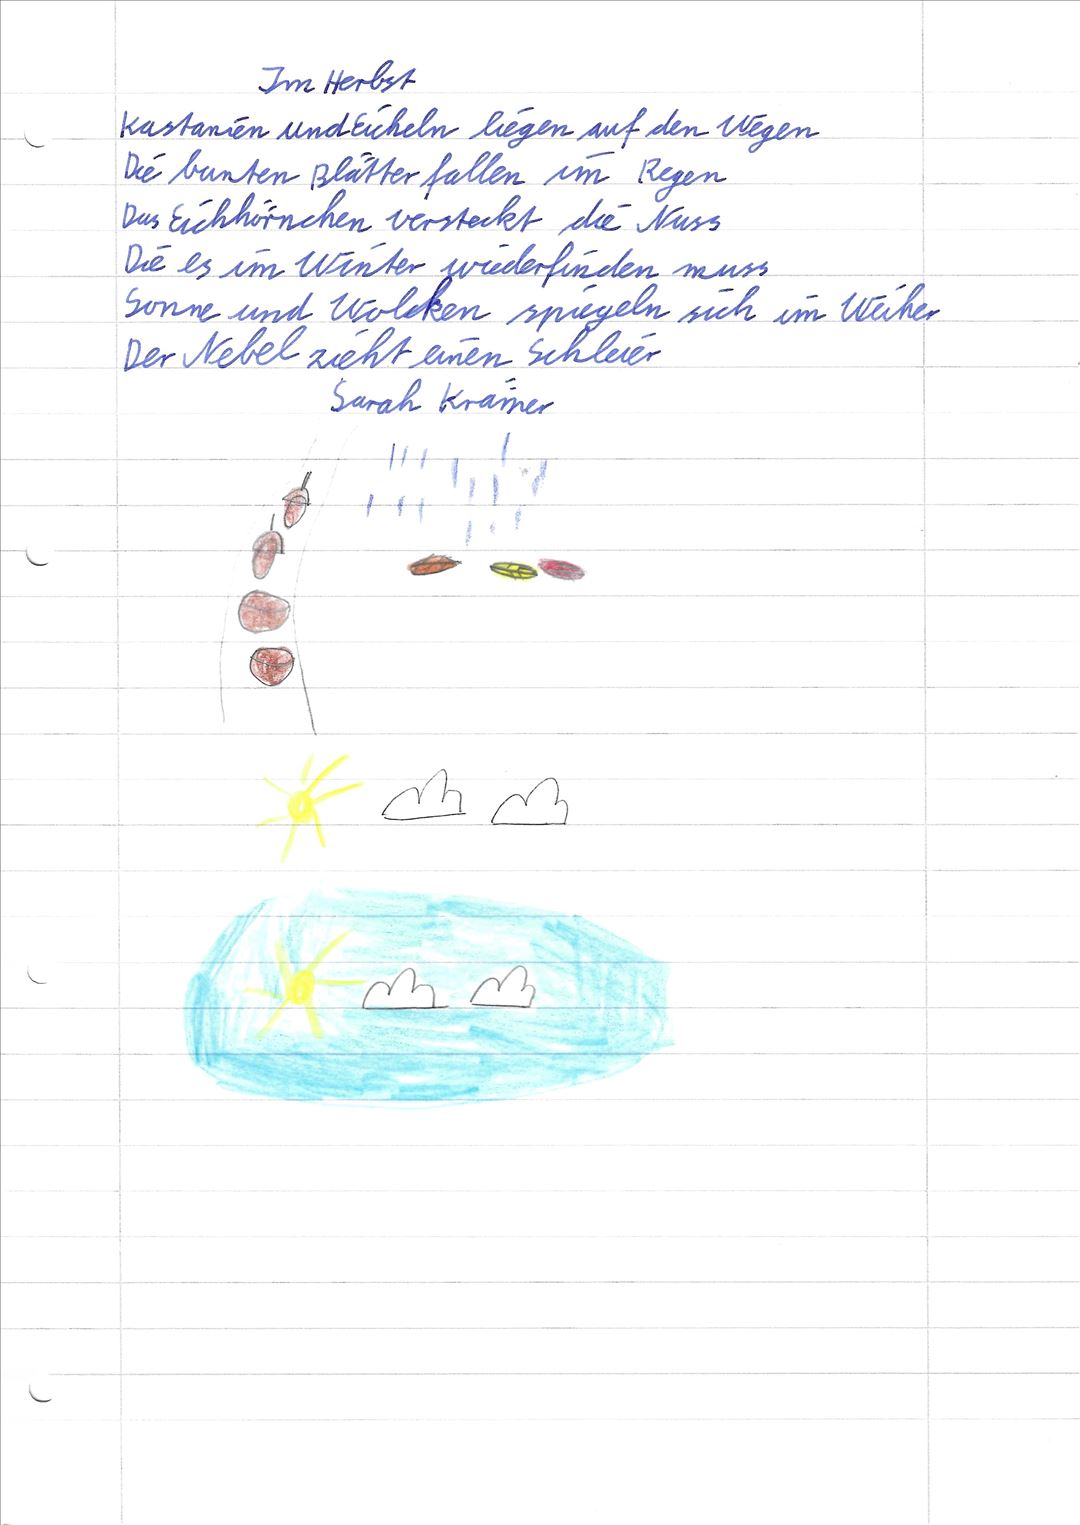 Im Herbst
Kastanien und Eicheln liegen auf den Wegen
Die bunten Blätter fallen im Regen
Das Eichhörnchen versteckt die Nuss
Die es im Winter wiederfinden muss
Sonne und Wolcken spiegeln sich im Weiher
Der Nebel zieht einen Schleier
Sarah Kramer